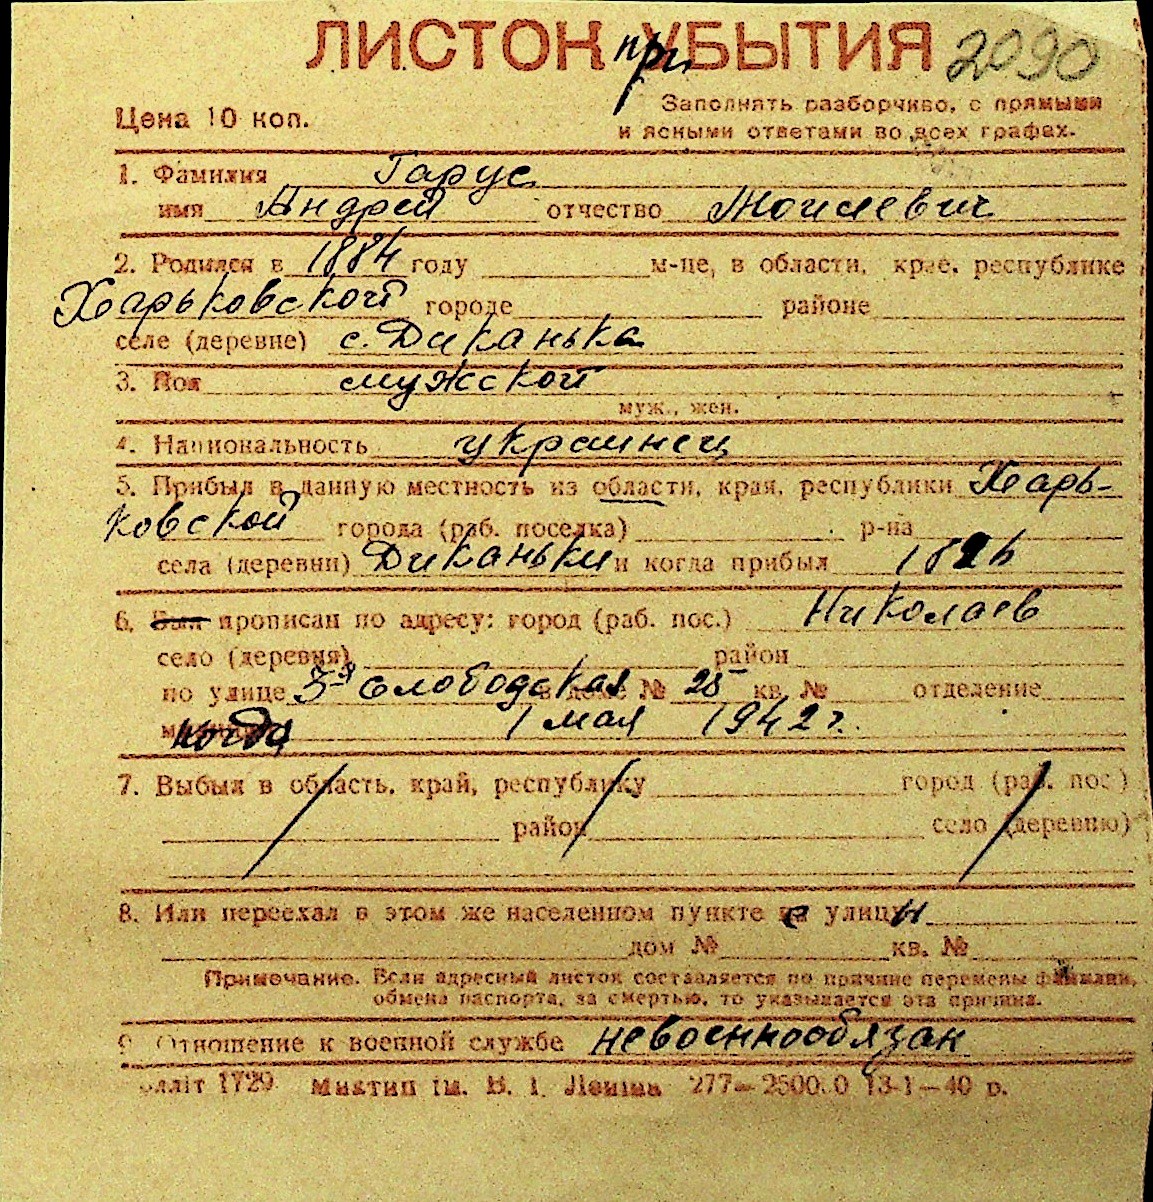 ЛИСТОК при УБЫТИЯ 2090
Цена 10 коп.
Заполнять разборчиво, с прямыми
и ясными ответами во всех графах.
1. Фамилия Гарус
имя Андрей отчество Моисеевич
2. Родился в 1884 году м-це, в области, крае, республике
Харьковской городе районе
селе (деревне) с. Диканька
3. Пол мужской
муж., жен.
4. Национальность украинец
5. Прибыл в данную местность из области, края, республики Харь-
ковской города (раб. поселка) р-на
села (деревни) Диканьки и когда прибыл
6. Был прописан по адресу: город (раб. пос.) Николаев
село (деревня) район
по улице 3я Слободская в доме № 25 кв. № отделение
когда 1 мая 1942 г.
7. Выбыл в область, край, республику город (раб. пос)
район село (деревню)
8. Или переехал в этом же населенном пункте улицы
дом № кв. №
Примечание. Если адресный листок составляется по причине перемены фамилии,
обмена паспорта, за смертью, то указывается эта причина.
9. Отношение к военной службе невоеннообязан
1729 Миктип ім. В. І. Леніна 277— 13-1—40 р.